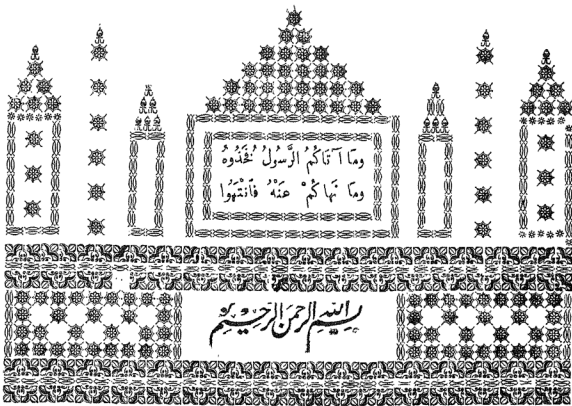 وما آتاكم الرسول فخذوه
وما نهاكم عنه فانتهوا
بسم الله الرحمن الرحيم